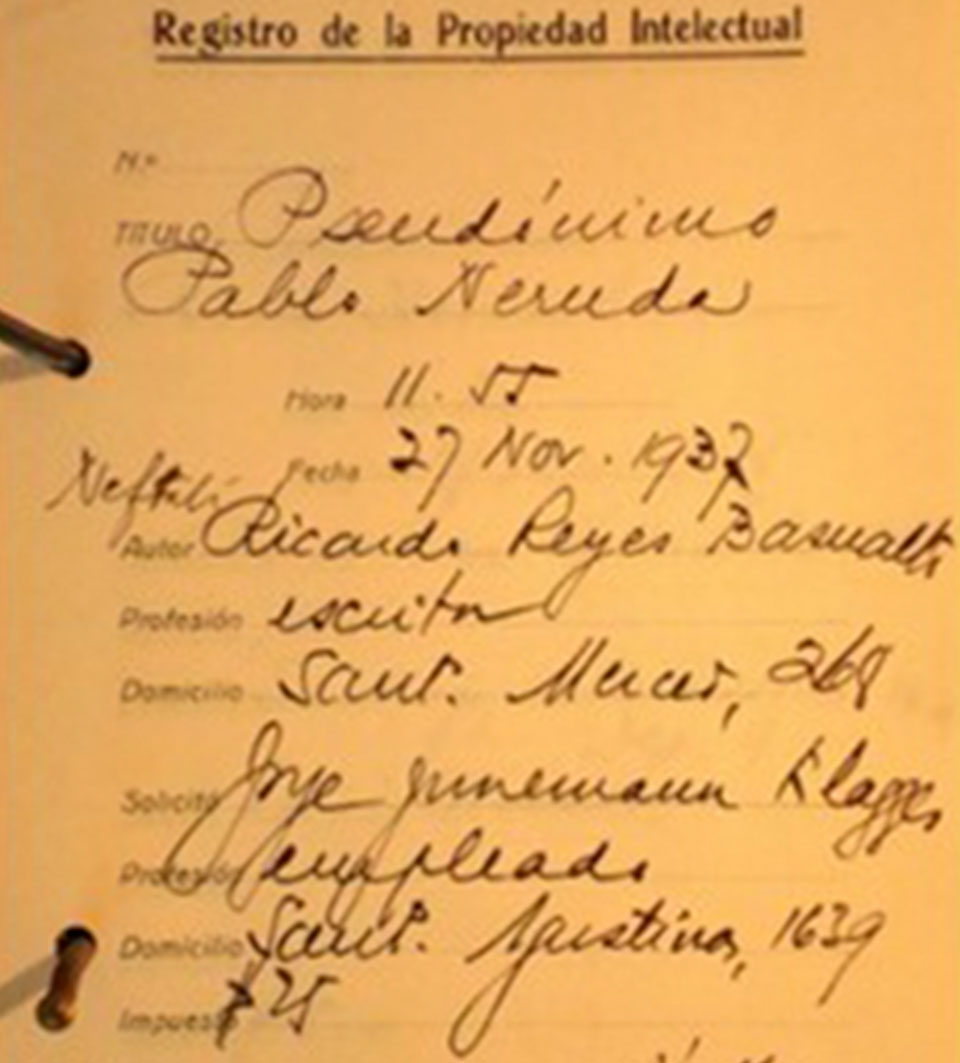 Registro de la Propiedad Intelectual
N.º
TITULO Pseudónimo
Pablo Neruda
Hora 11.55
Fecha 27 Nov. 1937
Neftalí
Autor Ricardo Reyes Basualto
Profesión escritor
Domicilio Sant. Merced, 268
Solicitó Jorge Junemann Klagges
Profesión empleado
Domicilio Sant. Agustinas, 1639
Impuesto $ 25